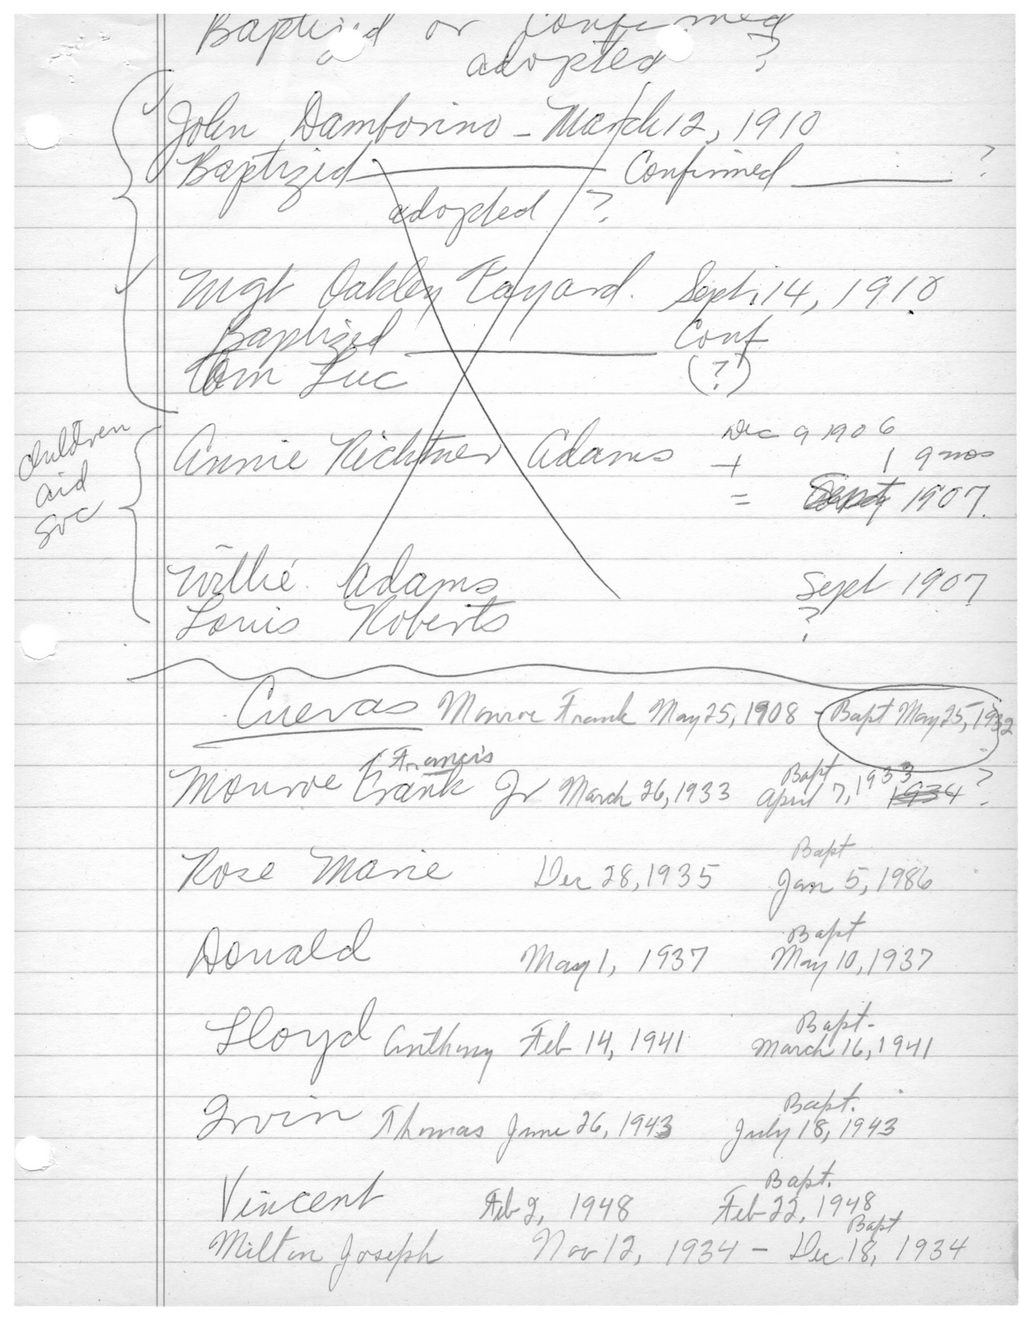 Baptized or Confirmed
adopted ?
John Damborino - March 12, 1910
Baptized ______ Confirmed ______ ?
adopted ?
Mgt Oakley Fayard. Sept. 14, 1910
Baptized ______ Conf
Tom Luc (?)
children aid Soc
Annie Richtner Adams Dec 9 1906
+ 1 9 mos
= 1907.
Willie Adams Sept 1907
Louis Roberts ?
Cuevas Monroe Frank May 25, 1908 - Bapt May 25, 1932
Francis
Monroe Frank Jr March 26, 1933 Bapt April 7, 1933 1934 ?
Bapt
Rose Marie Dec 28, 1935 Jan 5, 1986
Bapt
Donald May 1, 1937 May 10, 1937
Bapt.
Lloyd Anthony Feb 14, 1941 March 16, 1941
Bapt.
Irvin Thomas June 26, 1943 July 18, 1943
Bapt.
Vincent Feb 2, 1948 Feb 22, 1948
Bapt
Milton Joseph Nov 12, 1934 - Dec 18, 1934